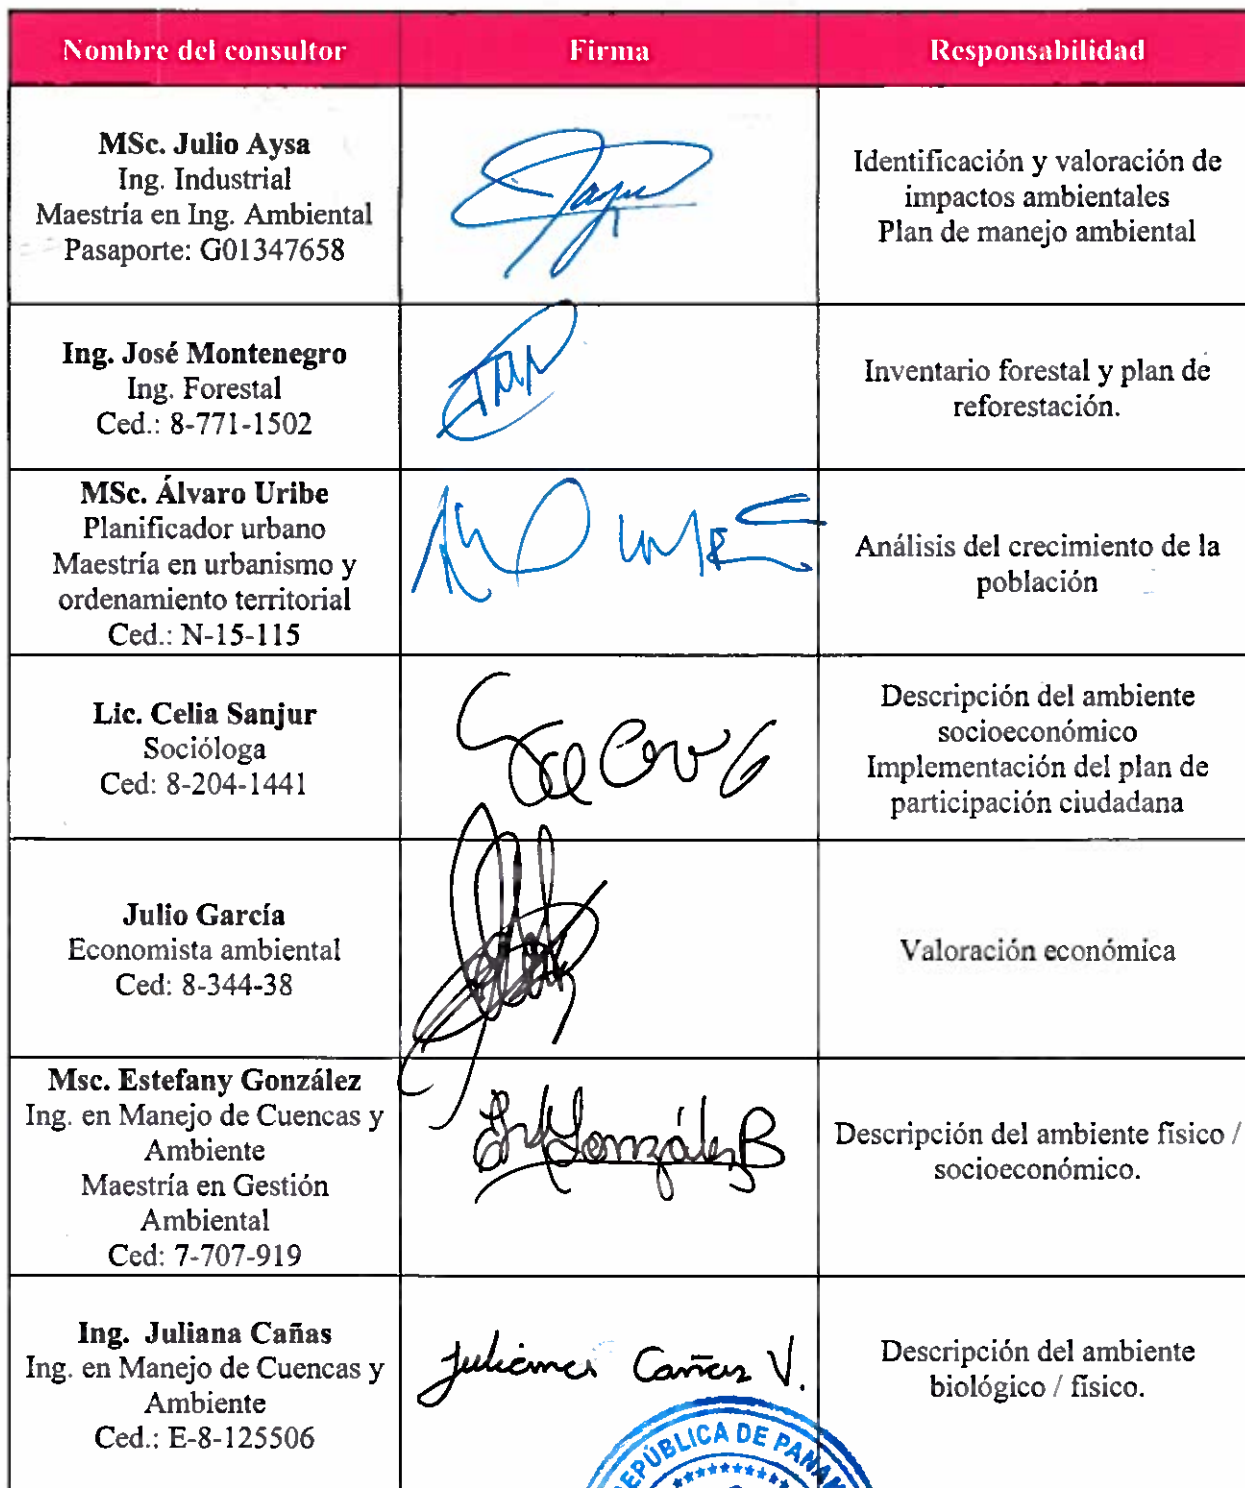 Nombre del consultor Firma Responsabilidad
MSc. Julio Aysa
Ing. Industrial
Maestría en Ing. Ambiental
Pasaporte: G01347658
Identificación y valoración de
impactos ambientales
Plan de manejo ambiental
Ing. José Montenegro
Ing. Forestal
Ced.: 8-771-1502
Inventario forestal y plan de
reforestación.
MSc. Álvaro Uribe
Planificador urbano
Maestría en urbanismo y
ordenamiento territorial
Ced.: N-15-115
Análisis del crecimiento de la
población
Lic. Celia Sanjur
Socióloga
Ced: 8-204-1441
Descripción del ambiente
socioeconómico
Implementación del plan de
participación ciudadana
Julio García
Economista ambiental
Ced: 8-344-38
Valoración económica
Msc. Estefany González
Ing. en Manejo de Cuencas y
Ambiente
Maestría en Gestión
Ambiental
Ced: 7-707-919
González B
Descripción del ambiente físico /
socioeconómico.
Ing. Juliana Cañas
Ing. en Manejo de Cuencas y
Ambiente
Ced.: E-8-125506
Juliana Cañas V.
Descripción del ambiente
biológico / físico.
REPÚBLICA DE PANAM